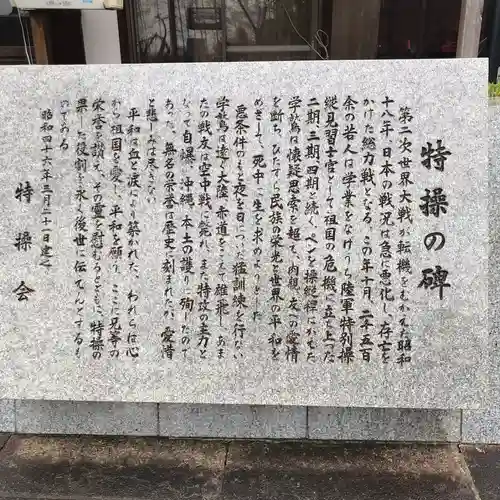 特操の碑
第二次世界大戦が転機をむかえた昭和
十八年、日本の戦況は急に悪化し、存亡を
かけた総力戦となる。この年十月、二千五百
余の若人は学業をなげうち陸軍特別操
縦見習士官として祖国の危機に立ち上った
二期、三期、四期と続く、ペンを操縦桿にかえた
学鷲は懐疑思索を超て、肉親と友への愛情
を断ち、ひたすら民族の栄光と世界の平和を
めざして、死中に生を求めようとした
悪条件のもと夜を日についだ猛訓練を行ない
学鷲は遠く大陸、赤道をこえて雄飛し、あま
たの戦友は空中戦に斃れ、また特攻の主力と
なって自爆し、沖縄、本土の護りに殉じたので
あった、無名の栄誉は歴史に刻まれたが、愛惜
と悲しみは尽きない
平和は血と涙により築かれた、われらは心
から祖国を愛し、平和を願う、ここに兄等の
栄誉を讃え、その霊を慰むるとともに、特操の
果した役割を永く後世に伝えんとするも
のである
昭和四十六年三月二十一日建之
特操会